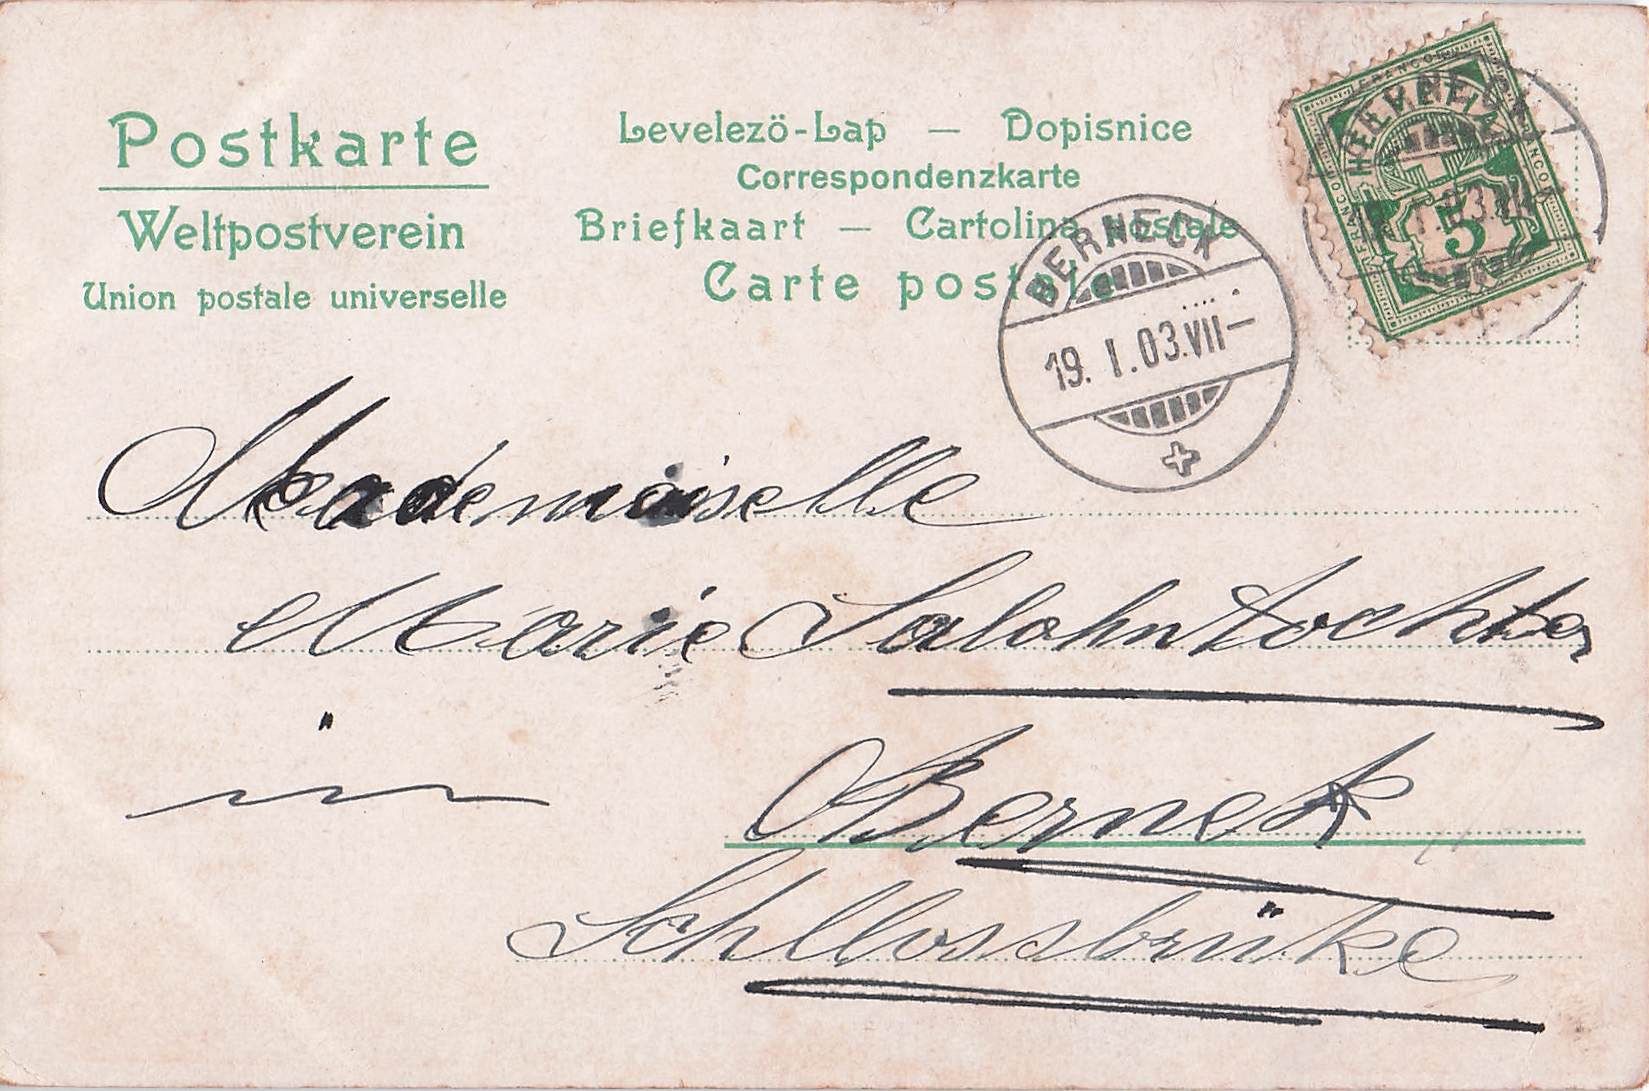 Postkarte
Weltpostverein
Union postale universelle
Levelezö-Lap — Dopisnice
Correspondenzkarte
Briefkaart — Cartolina postale
Carte postale
FRANCO
HELVETIA
5
BERNECK
19. I. 03. VII—
Mademoiselle
Marie Salohntochter
in
Bernek
Schllossbrüke